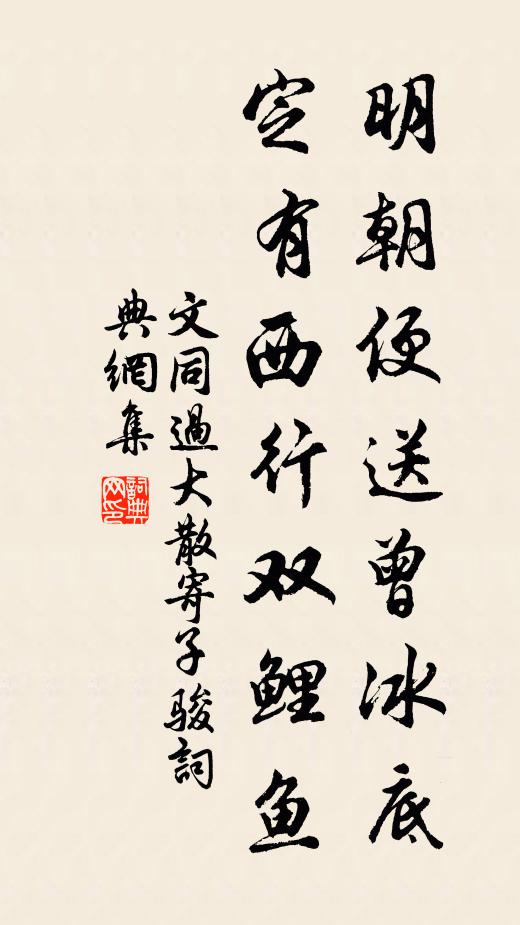 明朝便送曾冰底
定有西行双鲤鱼
文同過大散寄子駿詞
典網集
詞典
网印